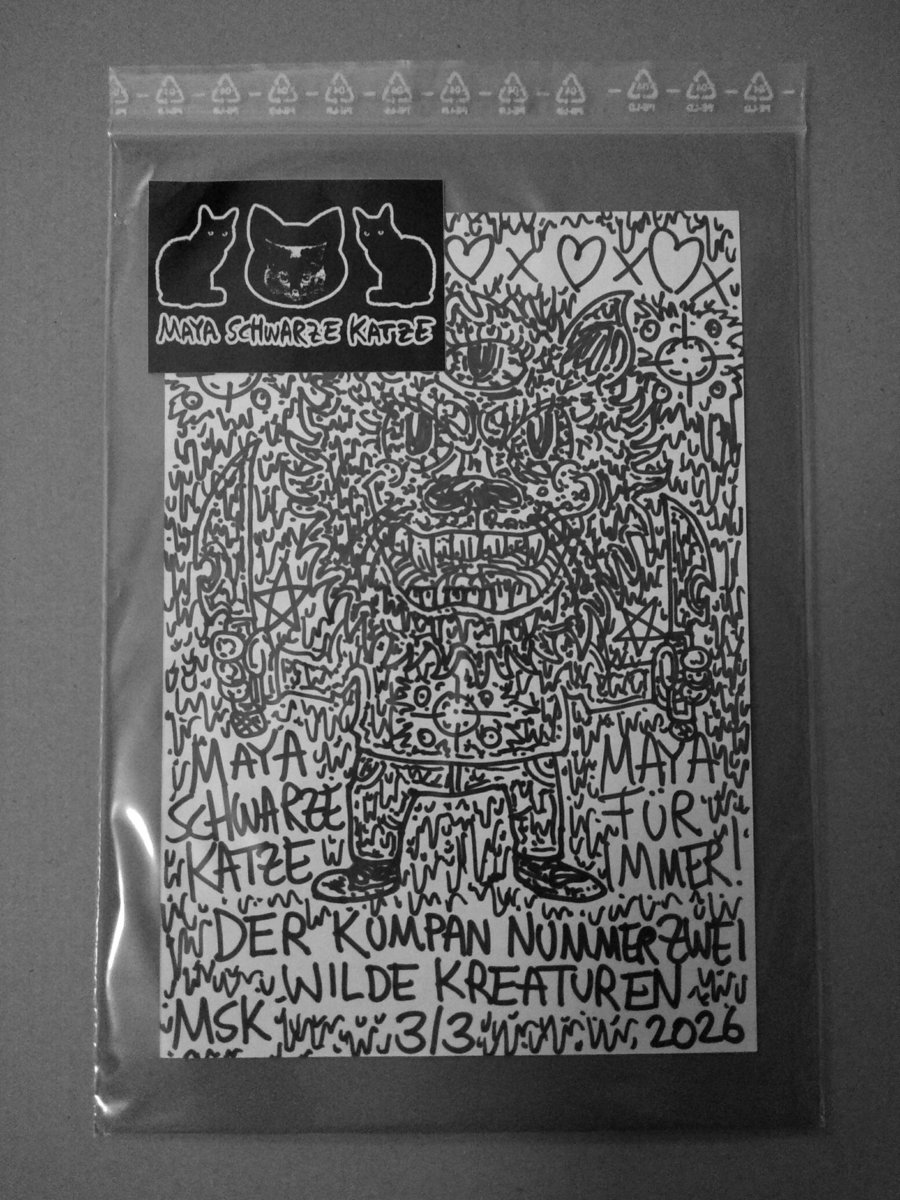 MAYA SCHWARZE KATZE
x x x
MAYA
SCHWARZE
KATZE
MAYA
FÜR
IMMER!
DER KUMPAN NUMMER ZWEI
WILDE KREATUREN
MSK 3/3 2026